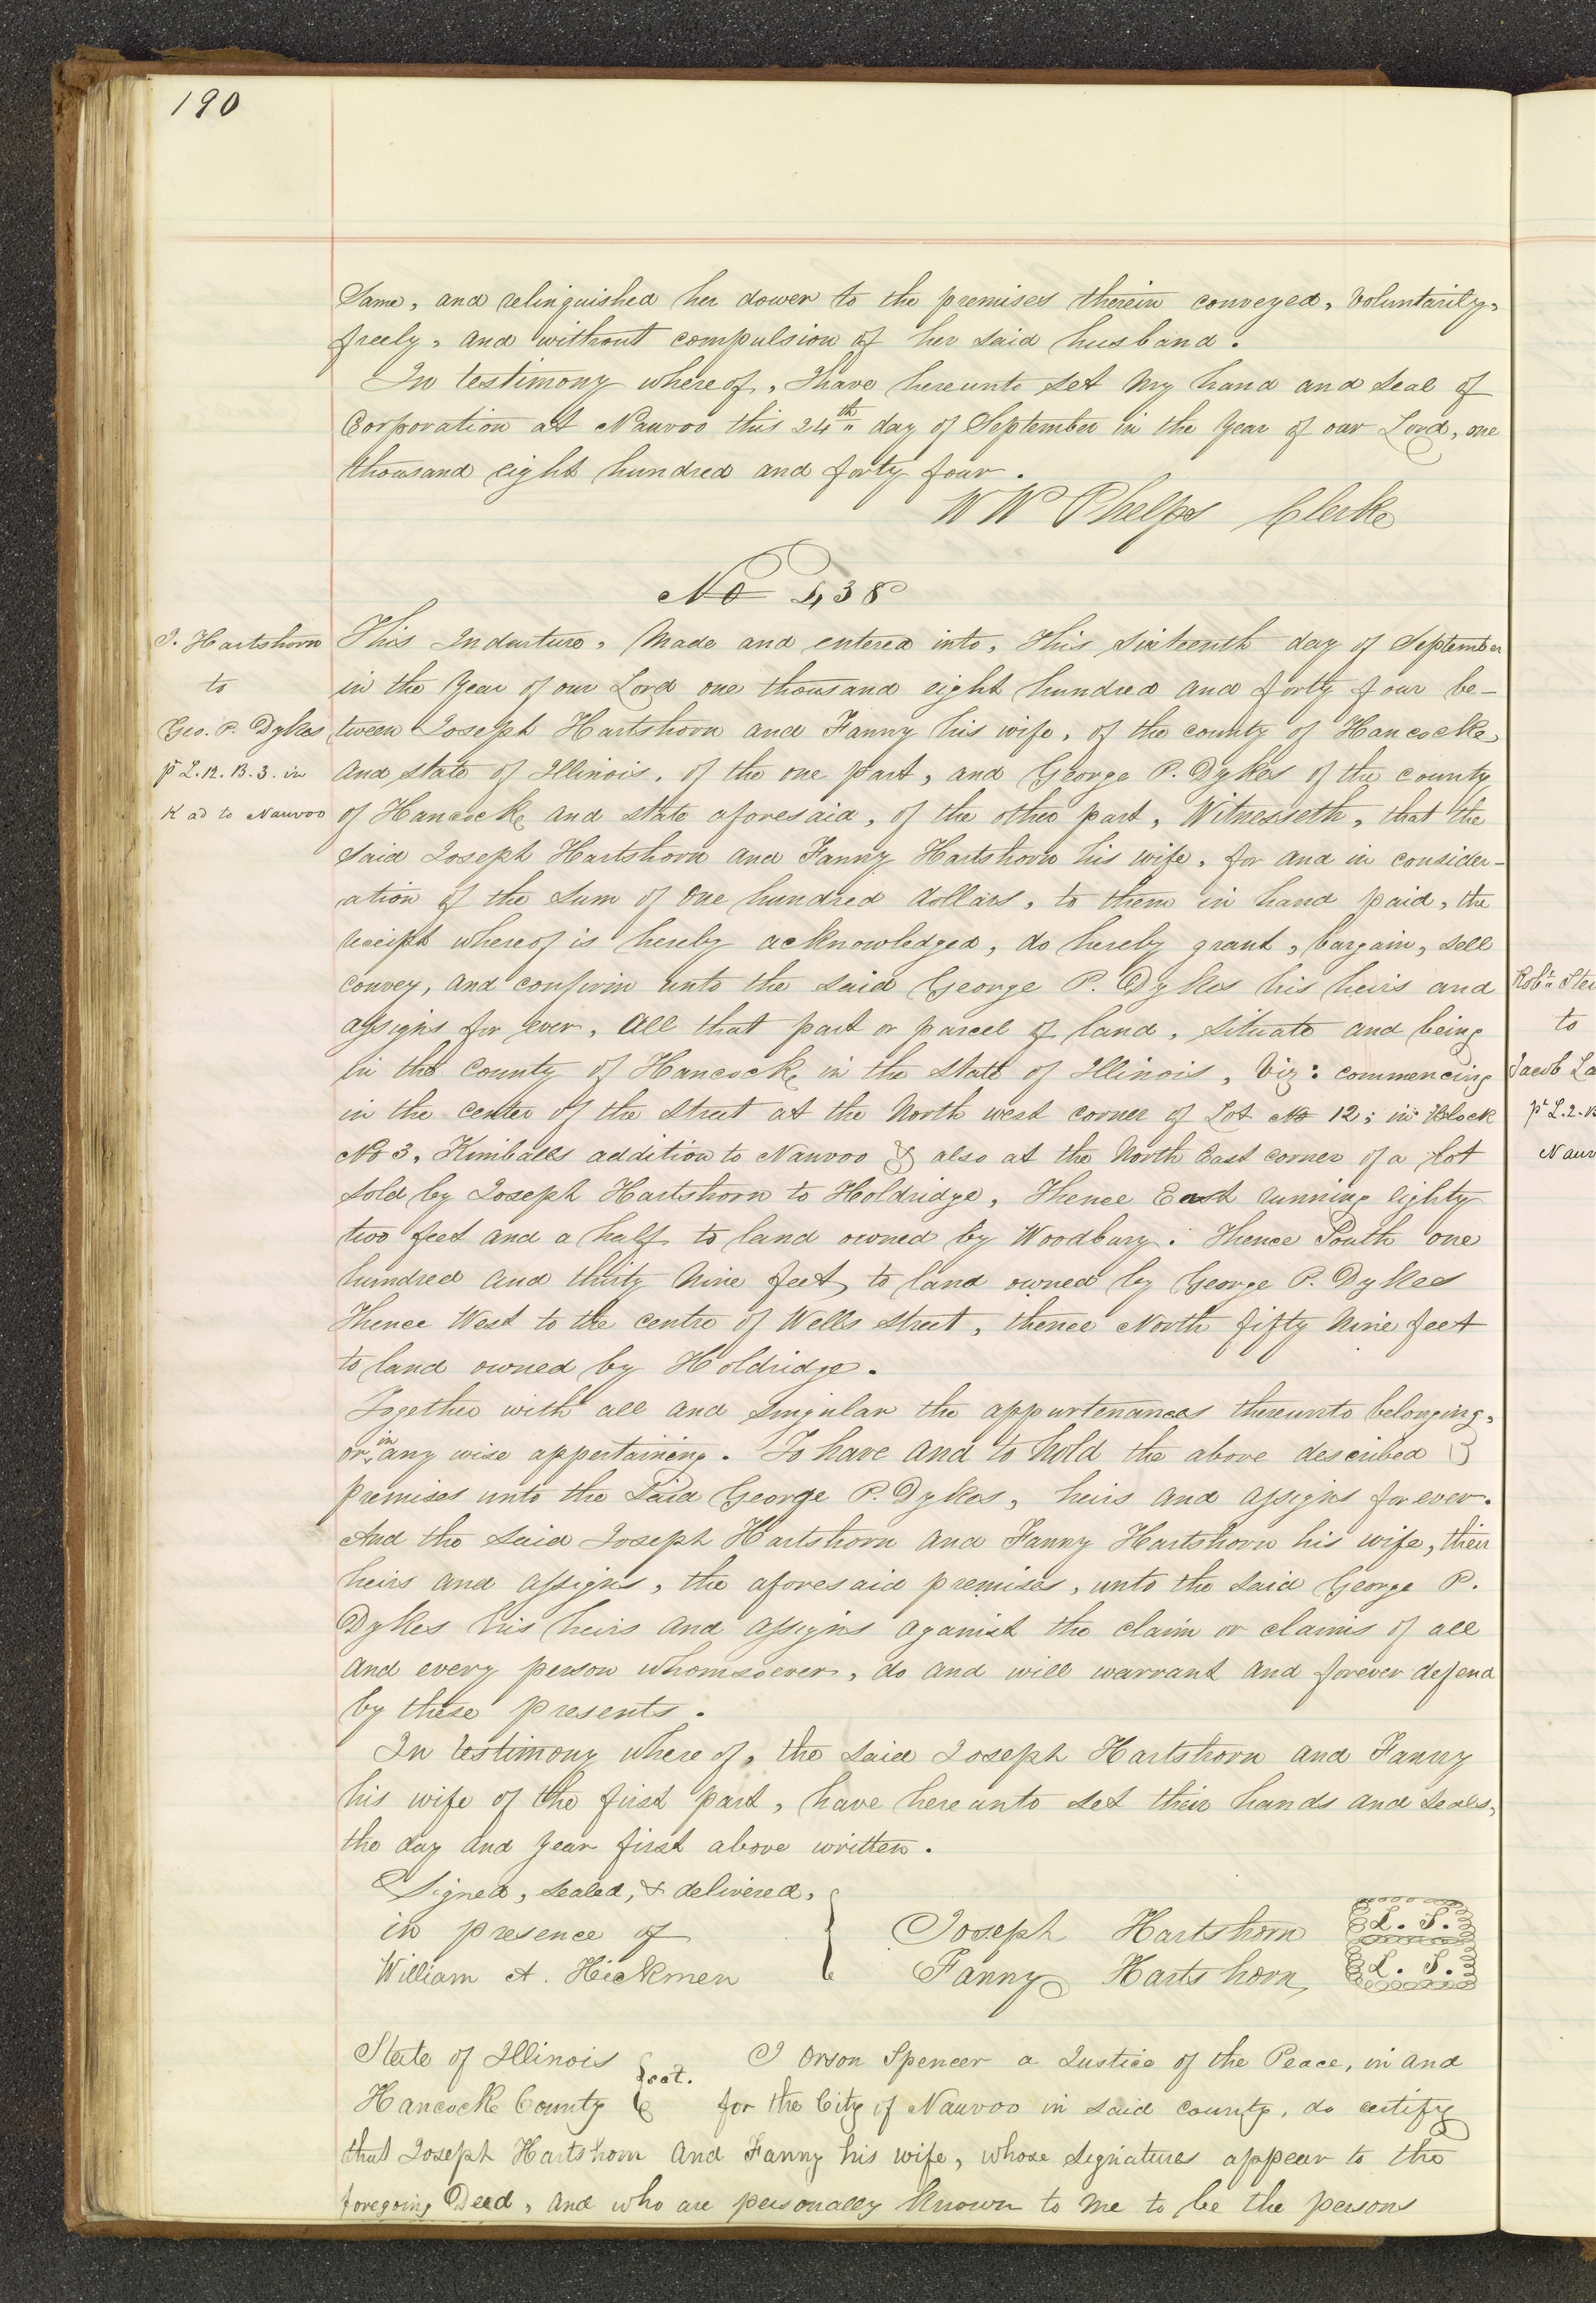 190
Same, and relinquished her dower to the premises therein conveyed, Voluntarily,
freely, and without compulsion of her said husband.
In testimony whereof, I have hereunto set my hand and seal of
Corporation at Nauvoo this 24th day of September in the Year of our Lord, one
thousand eight hundred and forty four.
W W Phelps Clerk
No 438
J. Hartshorn
to
Geo. P. Dykes
pt L. 12. B. 3. in
K ad to Nauvoo
This Indenture, Made and entered into, this sixteenth day of September
in the Year of our Lord one thousand eight hundred and forty four be-
tween Joseph Hartshorn and Fanny his wife, of the county of Hancock,
and state of Illinois, of the one part, and George P. Dykes of the county
of Hancock and state aforesaid, of the other part, Witnesseth, that the
said Joseph Hartshorn and Fanny Hartshorn his wife, for and in consider-
ation of the sum of One hundred dollars, to them in hand paid, the
receipt whereof is hereby acknowledged, do hereby grant, bargain, sell
convey, and confirm unto the said George P. Dykes his heirs and
assigns for ever, All that part or parcel of land, situate and being
in the County of Hancock in the State of Illinois, Viz: commencing
in the center of the street at the North west corner of Lot No 12; in Block
No 3, Kimballs addition to Nauvoo & also at the North East corner of a Lot
sold by Joseph Hartshorn to Holdridge, Thence East running eighty
two feet and a half to land owned by Woodbury. Thence South one
hundred and thirty Nine feet, to land owned by George P. Dykes
Thence West to the centre of Wells street, thence North fifty Nine feet
to land owned by Holdridge.
Together with all and singular the appurtenances thereunto belonging,
or in any wise appertaining. To have and to hold the above described
premises unto the Said George P. Dykes, heirs and assigns for ever.
And the said Joseph Hartshorn and Fanny Hartshorn his wife, their
heirs and assigns, the aforesaid premises, unto the said George P.
Dykes his heirs and assigns against the claim or claims of all
and every person whomsoever, do and will warrant and forever defend
by these presents.
In testimony where of, the said Joseph Hartshorn and Fanny
his wife of the first part, have here unto set their hands and seals,
the day and year first above written.
Signed, sealed, & delivered,
in presence of
William A. Hickmen
Joseph Hartshorn L. S.
Fanny Hartshorn L. S.
State of Illinois
Hancock County sct.
I Orson Spencer a Justice of the Peace, in and
for the City of Nauvoo in said county, do certify
that Joseph Hartshorn and Fanny his wife, whose signatures appear to the
foregoing Deed, and who are personally known to me to be the persons
to
Jacob La
pt L. 2.
Nauv